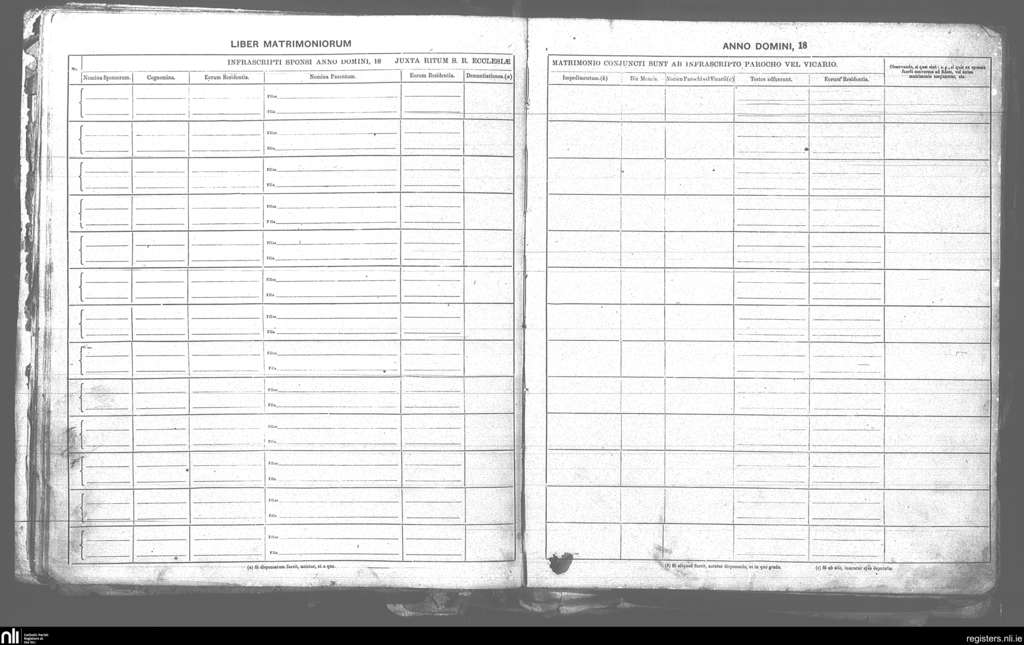 LIBER MATRIMONIORUM
INFRASCRIPTI SPONSI ANNO DOMINI, 18 JUXTA RITUM S. R. ECCLESIÆ
No.
Nomina Sponsorum. Cognomina. Eorum Residentia. Nomina Parentum. Eorum Residentia. Denuntiationes.(a)
Filius
Filia
Filius
Filia
Filius
Filia
Filius
Filia
Filius
Filia
Filius
Filia
Filius
Filia
Filius
Filia
Filius
Filia
Filius
Filia
Filius
Filia
Filius
Filia
Filius
Filia
(a) Si dispensatum fuerit, notetur, et a quo.
ANNO DOMINI, 18
MATRIMONIO CONJUNCTI SUNT AB INFRASCRIPTO PAROCHO VEL VICARIO.
Impedimentum.(b) Die Mensis. Nomen Parochi vel Vicarii(c) Testes adfuerunt. Eorum Residentia.
Observanda, si quae sint :
(b) Si aliquod fuerit, notetur dispensatio, et in quo gradu. (c) Si ab alio, inseratur ejus deputatio.
nli Catholic Parish
Registers at
the NLI
registers.nli.ie